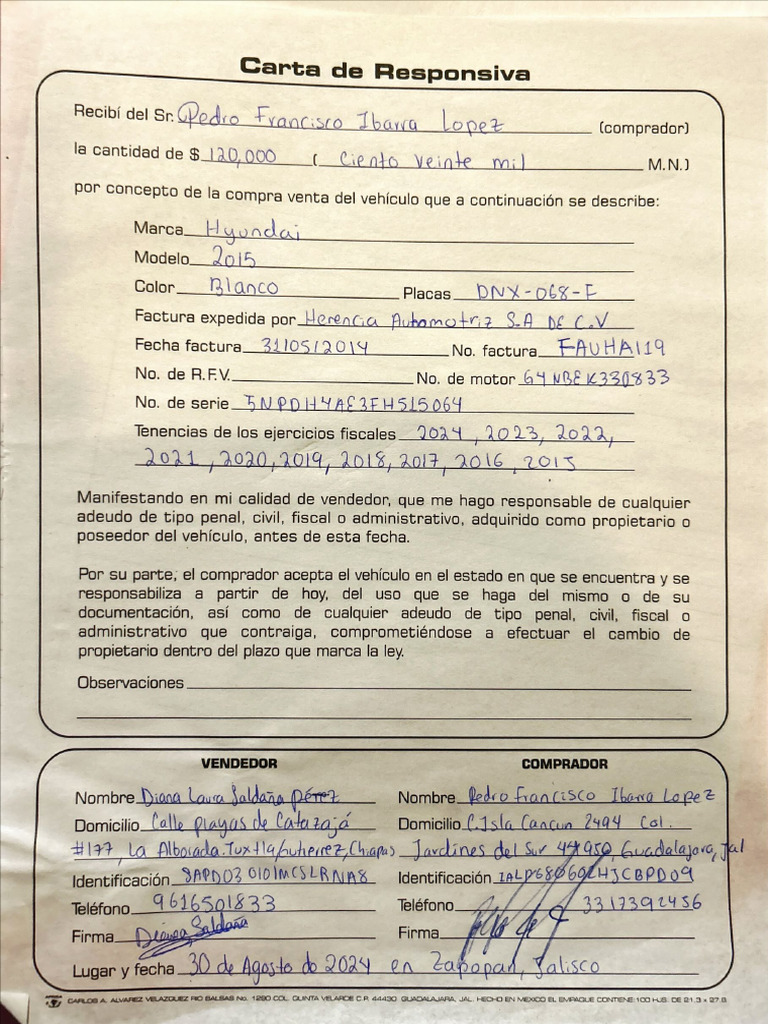 Carta de Responsiva
Recibí del Sr. Pedro Francisco Ibarra Lopez (comprador)
la cantidad de $ 120,000 ( Ciento veinte mil M.N.)
por concepto de la compra venta del vehículo que a continuación se describe:
Marca Hyundai
Modelo 2015
Color Blanco Placas DNX-068-F
Factura expedida por Herencia Automotriz S.A DE C.V
Fecha factura 31/05/2014 No. factura FAUHAI19
No. de R.F.V. No. de motor G4NBEK330833
No. de serie 5NPDH4AE3FH515064
Tenencias de los ejercicios fiscales 2024, 2023, 2022,
2021, 2020, 2019, 2018, 2017, 2016, 2015
Manifestando en mi calidad de vendedor, que me hago responsable de cualquier
adeudo de tipo penal, civil, fiscal o administrativo, adquirido como propietario o
poseedor del vehículo, antes de esta fecha.
Por su parte, el comprador acepta el vehículo en el estado en que se encuentra y se
responsabiliza a partir de hoy, del uso que se haga del mismo o de su
documentación, así como de cualquier adeudo de tipo penal, civil, fiscal o
administrativo que contraiga, comprometiéndose a efectuar el cambio de
propietario dentro del plazo que marca la ley.
Observaciones
VENDEDOR COMPRADOR
Nombre Diana Laura Saldaña pérez Nombre Pedro Francisco Ibarra Lopez
Domicilio Calle playas de Catazajá Domicilio C. Isla Cancun 2494 Col.
#177, La Alborada. Tuxtla Gutierrez, Chiapas Jardines del Sur 44950, Guadalajara, Jal
Identificación SAPD030101MCSLRNA8 Identificación IALP680602HJCBPD09
Teléfono 9616501833 Teléfono 3317392456
Firma Diana Saldaña Firma
Lugar y fecha 30 de Agosto do 2024 en Zapopan, Jalisco
CARLOS A. ALVAREZ VELAZQUEZ RIO BALSAS No. 1290 COL. QUINTA VELARDE C.P. 44430 GUADALAJARA, JAL. HECHO EN MEXICO EL EMPAQUE CONTIENE: 100 HJS. DE 21.3 x 27.8